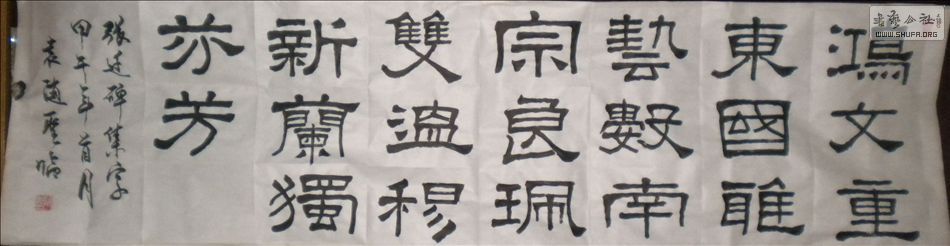 書藝公社
WWW.SHUFA.ORG
鴻文重
東國雅
藝數南
宗良珮
雙溫穆
新蘭獨
亦芳
張迁碑集字
甲午年首月
袁随聖臨